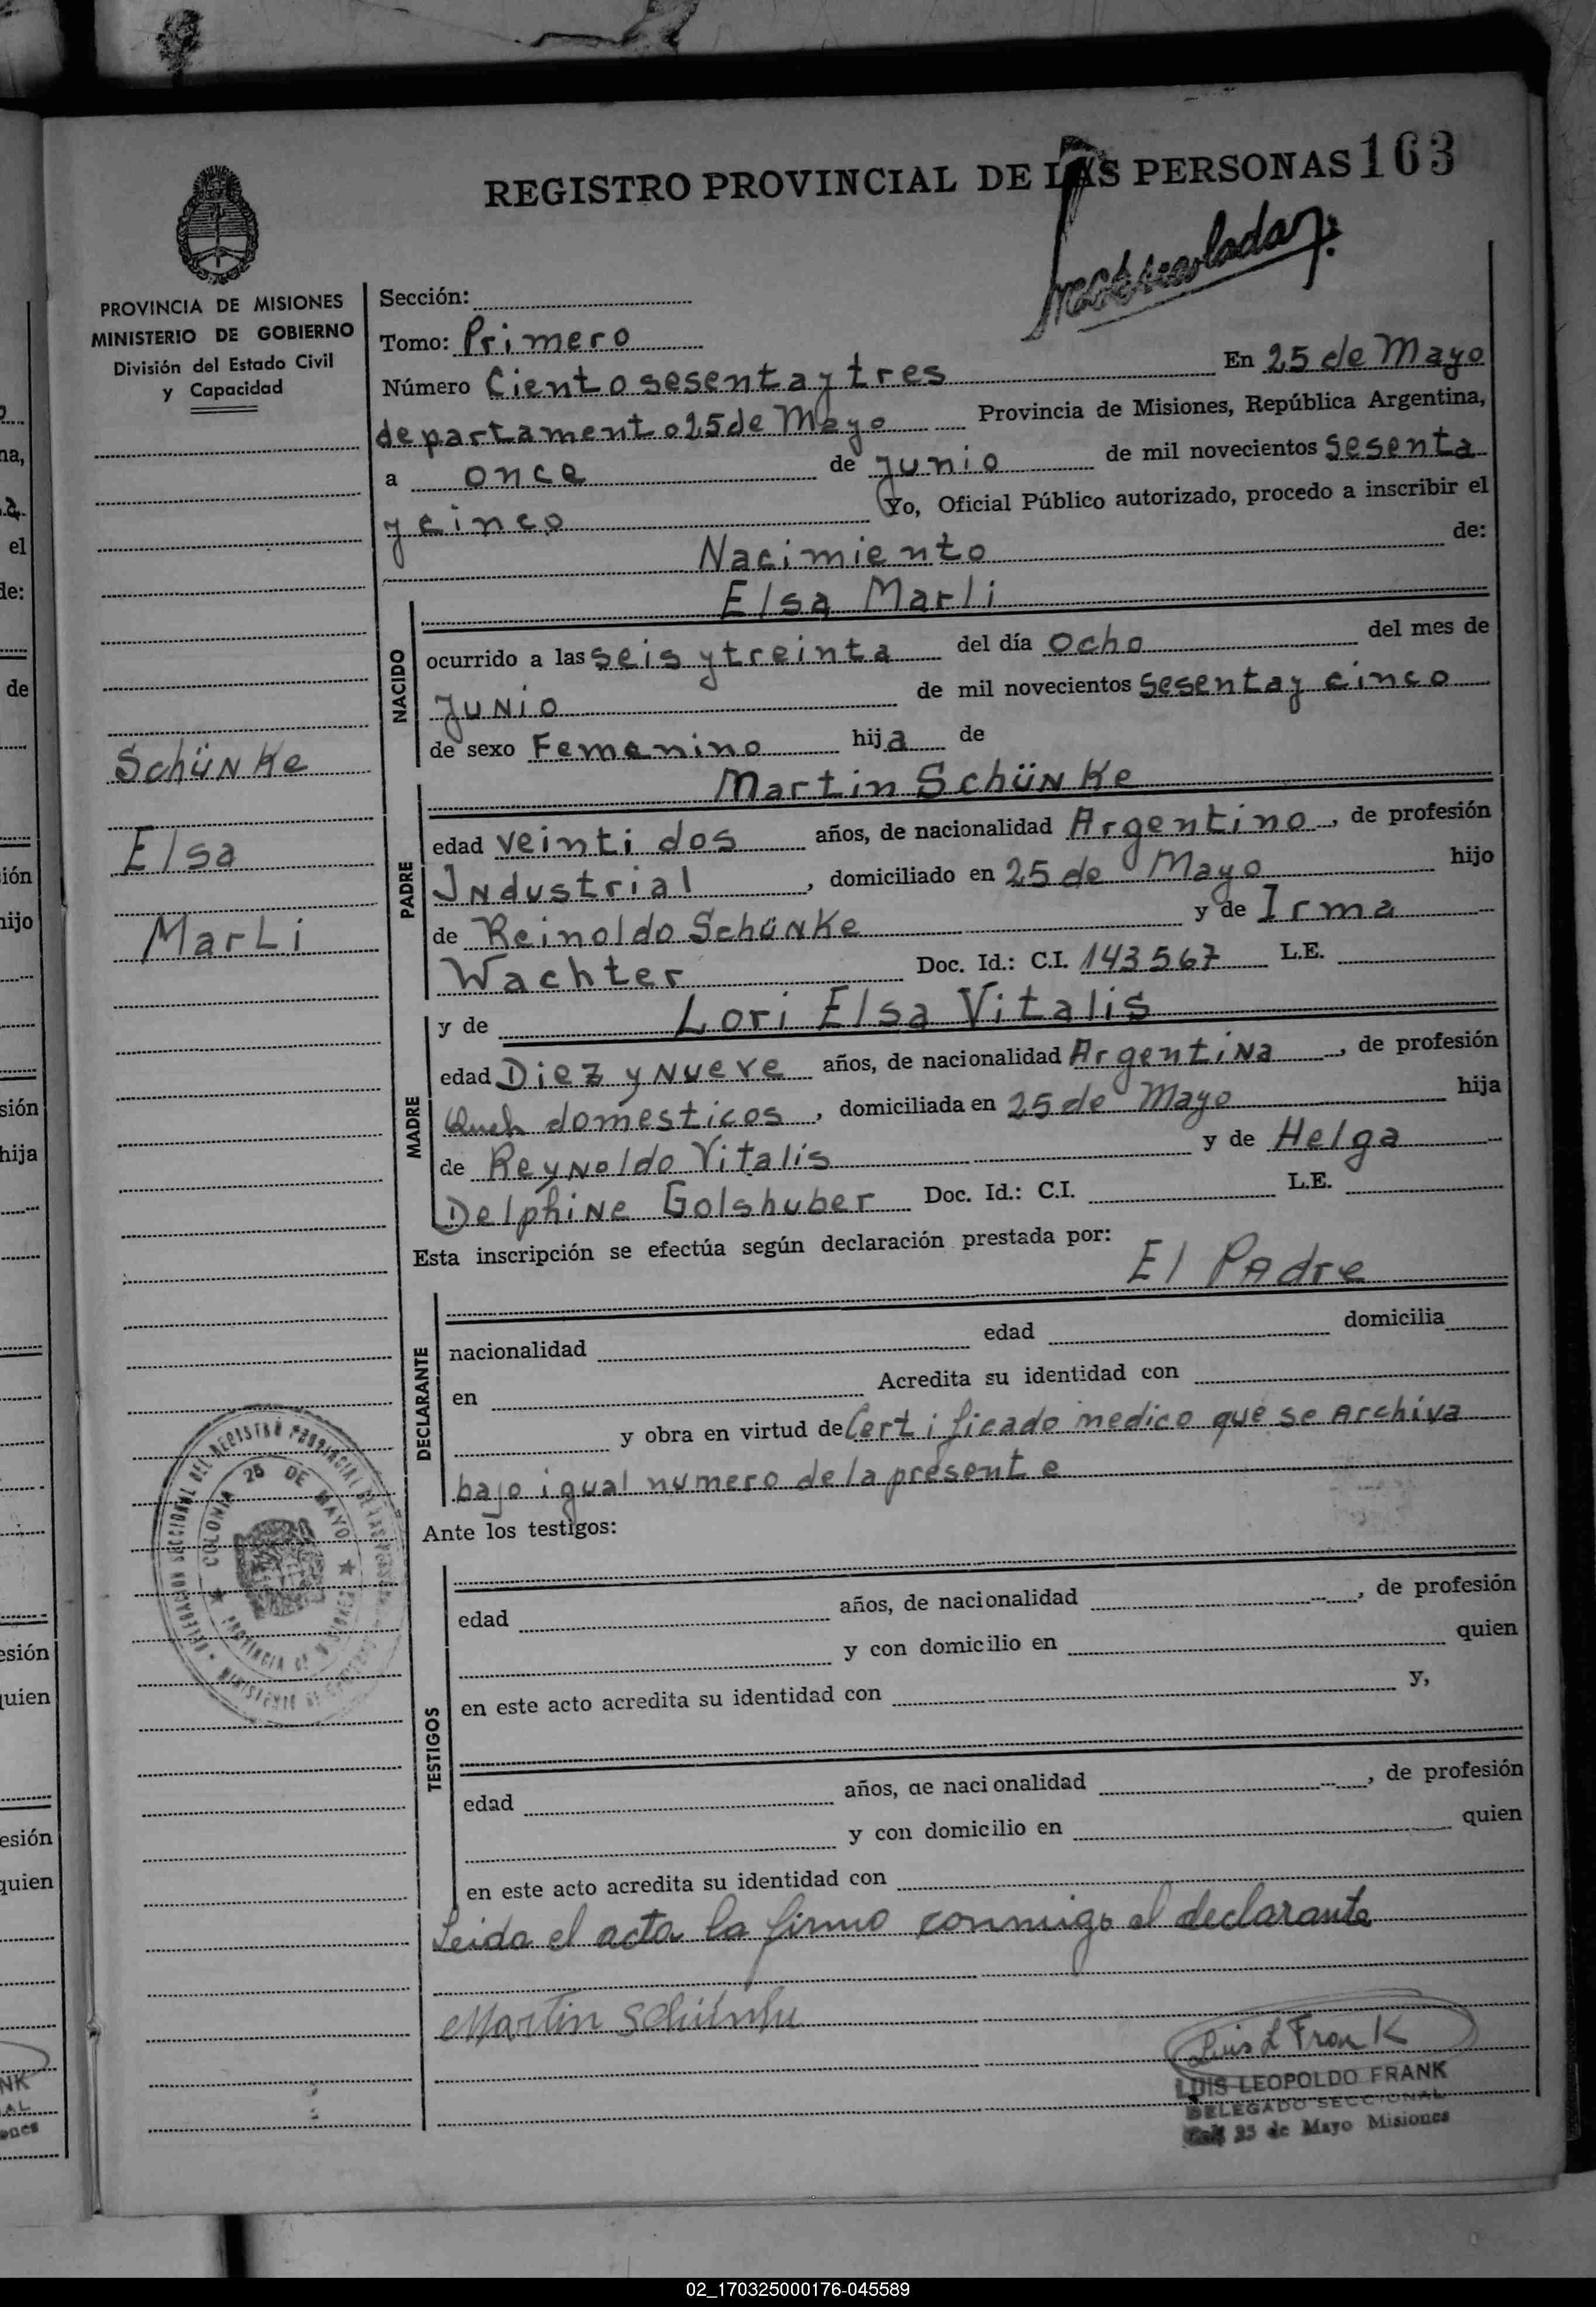 REGISTRO PROVINCIAL DE LAS PERSONAS 163
PROVINCIA DE MISIONES
MINISTERIO DE GOBIERNO
División del Estado Civil
y Capacidad
Schünke
Elsa
MarLi
COLONIA 25 DE MAYO
PROVINCIA DE MISIONES
Sección:
Tomo: Primero
Número Ciento sesenta y tres En 25 de Mayo
departamento 25 de Mayo Provincia de Misiones, República Argentina,
a once de Junio de mil novecientos sesenta
y cinco Yo, Oficial Público autorizado, procedo a inscribir el
Nacimiento de:
Elsa Marli
NACIDO
ocurrido a las seis y treinta del día ocho del mes de
Junio de mil novecientos sesenta y cinco
de sexo Femenino hija de
Martin Schünke
PADRE
edad veinti dos años, de nacionalidad Argentino, de profesión
Industrial, domiciliado en 25 de Mayo hijo
de Reinoldo Schünke y de Irma
Wachter Doc. Id.: C.I. 143567 L.E.
MADRE
y de Lori Elsa Vitalis
edad Diez y Nueve años, de nacionalidad Argentina, de profesión
Queh domesticos, domiciliada en 25 de Mayo hija
de Reynoldo Vitalis y de Helga
Delphine Golshuber Doc. Id.: C.I. L.E.
Esta inscripción se efectúa según declaración prestada por:
El Padre
DECLARANTE
nacionalidad edad domicilia
en Acredita su identidad con
y obra en virtud de Certificado medico que se Archiva
bajo igual numero de la presente
Ante los testigos:
TESTIGOS
edad años, de nacionalidad, de profesión
y con domicilio en quien
en este acto acredita su identidad con y,
edad años, de nacionalidad, de profesión
y con domicilio en quien
en este acto acredita su identidad con
Leida el acta la firmo conmigo el declarante
Martin Schünke
Luis L Frank
LUIS LEOPOLDO FRANK
DELEGADO SECCIONAL
25 de Mayo Misiones
02_170325000176-045589